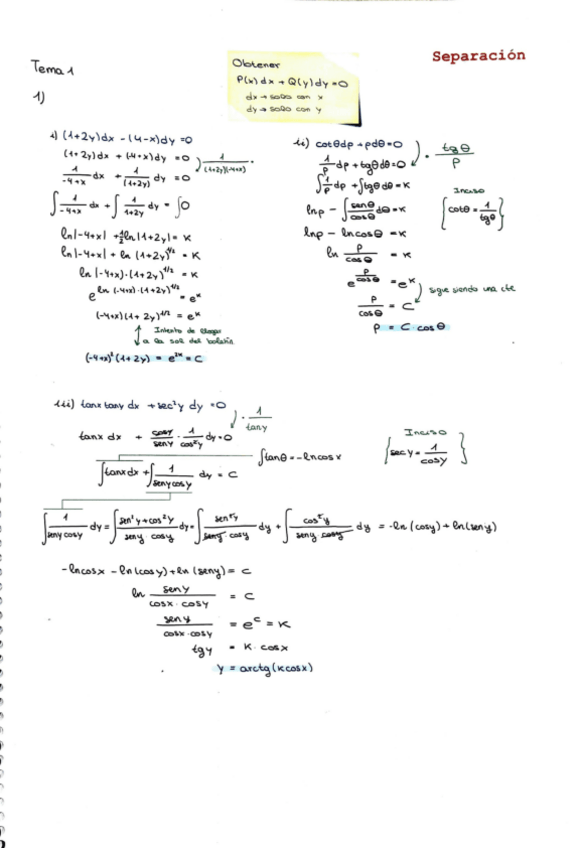 Separación
Tema 1
Obtener
P(x)dx + Q(y)dy = 0
dx → solo con x
dy → solo con y
1)
i) (1+2y)dx - (4-x)dy = 0
(1+2y)dx + (-4+x)dy = 0
· 1/((1+2y)(-4+x))
1/(-4+x) dx + 1/(1+2y) dy = 0
∫ 1/(-4+x) dx + ∫ 1/(1+2y) dy = ∫0
ln|-4+x| + 1/2 ln|1+2y| = K
ln|-4+x| + ln (1+2y)^1/2 = K
ln |(-4+x)·(1+2y)^1/2 = K
e^(ln (-4+x)·(1+2y)^1/2) = e^K
(-4+x)(1+2y)^1/2 = e^K
Intento de llegar
a la sol del boletín
(-4+x)²(1+2y) = e^2K = C
ii) cotθdρ + ρdθ = 0
· tgθ/ρ
1/ρ dρ + tgθdθ = 0
∫ 1/ρ dρ + ∫tgθdθ = K
Inciso
{cotθ = 1/tgθ}
lnρ - ∫ senθ/cosθ dθ = K
lnρ - lncosθ = K
ln ρ/cosθ = K
e^(ρ/cosθ) = e^K
sigue siendo una cte
ρ/cosθ = C
ρ = C·cosθ
iii) tanx tany dx + sec²y dy = 0
· 1/tany
tanx dx + cosy/seny · 1/cos²y dy = 0
Inciso
{sec y = 1/cosy}
∫tanθ = -ln cosx
∫tanx dx + ∫ 1/(seny cosy) dy = C
∫ 1/(seny cosy) dy = ∫ (sen²y + cos²y)/(seny cosy) dy = ∫ sen²y/(seny·cosy) dy + ∫ cos²y/(seny cosy) dy = -ln (cosy) + ln(seny)
-lncosx - ln(cosy) + ln (seny) = C
ln seny/(cosx·cosy) = C
seny/(cosx·cosy) = e^C = K
tgy = K·cosx
y = arctg(Kcosx)